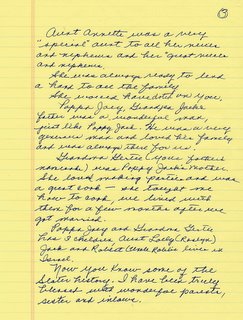 3
Aunt Annette was a very
"special" aunt to all her nieces
and nephews and her "great nieces
and nephews.
She was always ready to lend
a hand to all the family
She would have loved you.
Poppa Joey, Grandpa Jack's
father was a wonderful man,
just like Poppy Jack. He was a very
generous man and loved her family
and was always there for us.
Grandma Gertie (your father's
namesake) was Poppy Jack's Mother.
She loved making parties and was
a great cook – she taught me
how to cook we lived with
them for a few months after we
got married.
Poppa Joey and Grandma Gertie
has 3 children Aunt Lolly (Roslyn)
Jack and Robert Uncle Robbie lives in
Israel.
Now you know some of the
history. I have been truly
blessed with wonderful parents,
sister and inlaws.